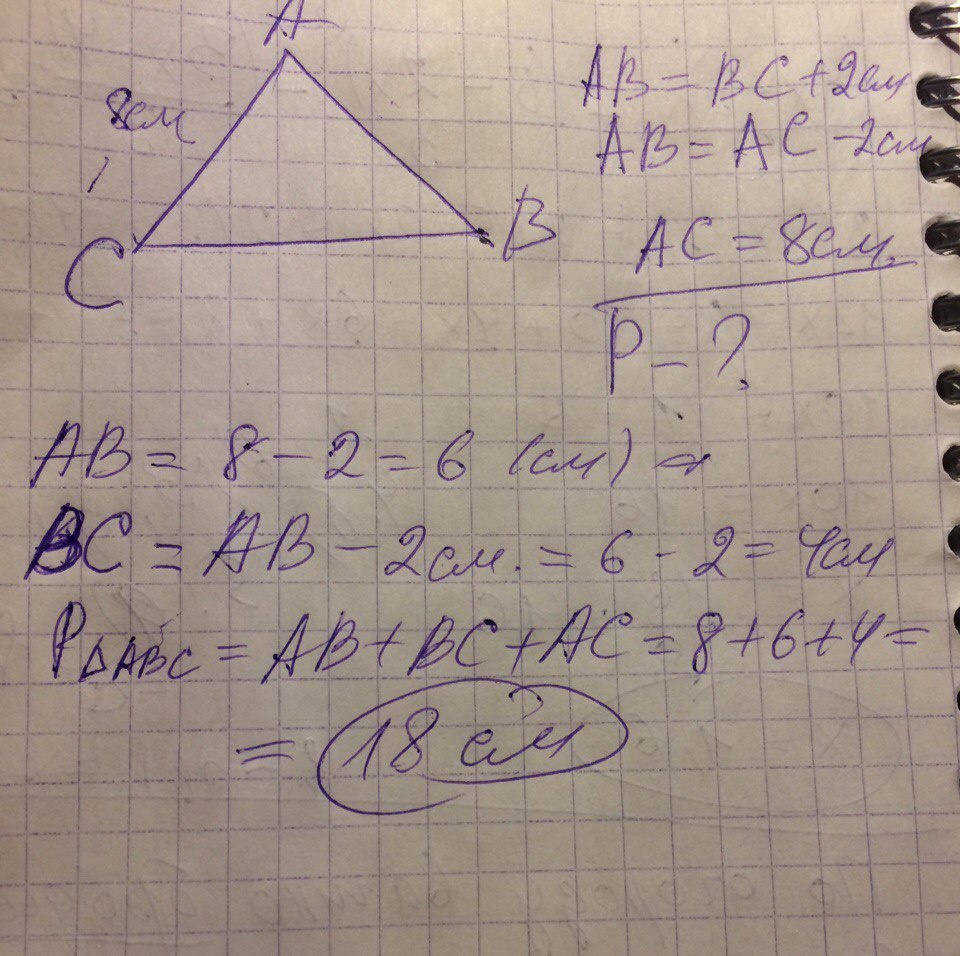 A
8см
C
B
AB = BC + 2см
AB = AC - 2см
AC = 8см.
P - ?
AB = 8 - 2 = 6 (см) ⇒
BC = AB - 2см. = 6 - 2 = 4см
P△ABC = AB + BC + AC = 8 + 6 + 4 =
= 18 см